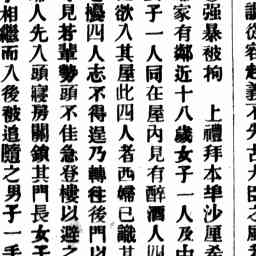 從容赴義不失古大臣之風
强暴被拘　上禮拜本埠沙厘
家有鄰近十八歲女子一人及
子一人同在屋內見有醉酒人四
欲入其屋此四人者西婦已識其
擾四人志不得逞乃轉往後門以
見若輩勢頭不佳急登樓以避之
人先入頭寢房關鎖其門長女子
相繼而入後被追隨之男子一手